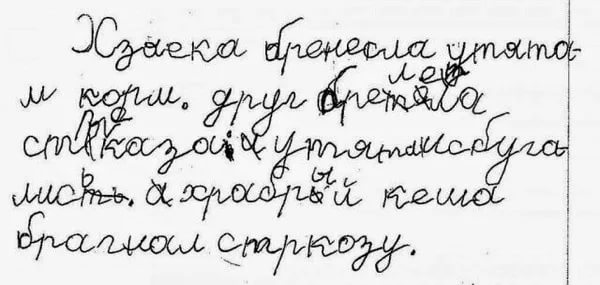 Хзаека бренесла утята-
м корм. друг бретела
стреказа и утята исбуга
лись. а храбрый кеша
брагнал старкозу.